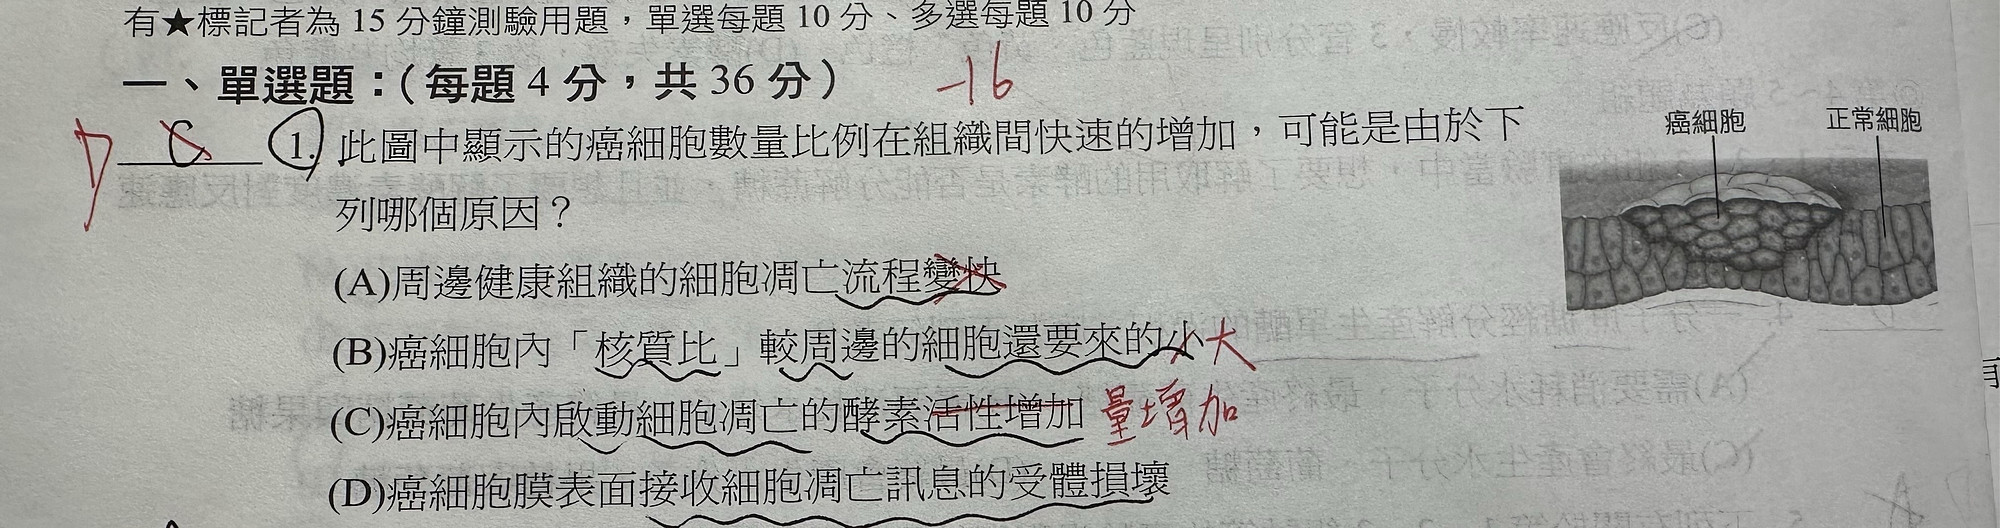 有★標記者為 15 分鐘測驗用題，單選每題 10 分、多選每題 10 分
一、單選題：（每題 4 分，共 36 分）
-16
D C 1. 此圖中顯示的癌細胞數量比例在組織間快速的增加，可能是由於下
列哪個原因？
(A)周邊健康組織的細胞凋亡流程變快
(B)癌細胞內「核質比」較周邊的細胞還要來的小 大
(C)癌細胞內啟動細胞凋亡的酵素活性增加 量增加
(D)癌細胞膜表面接收細胞凋亡訊息的受體損壞
癌細胞 正常細胞